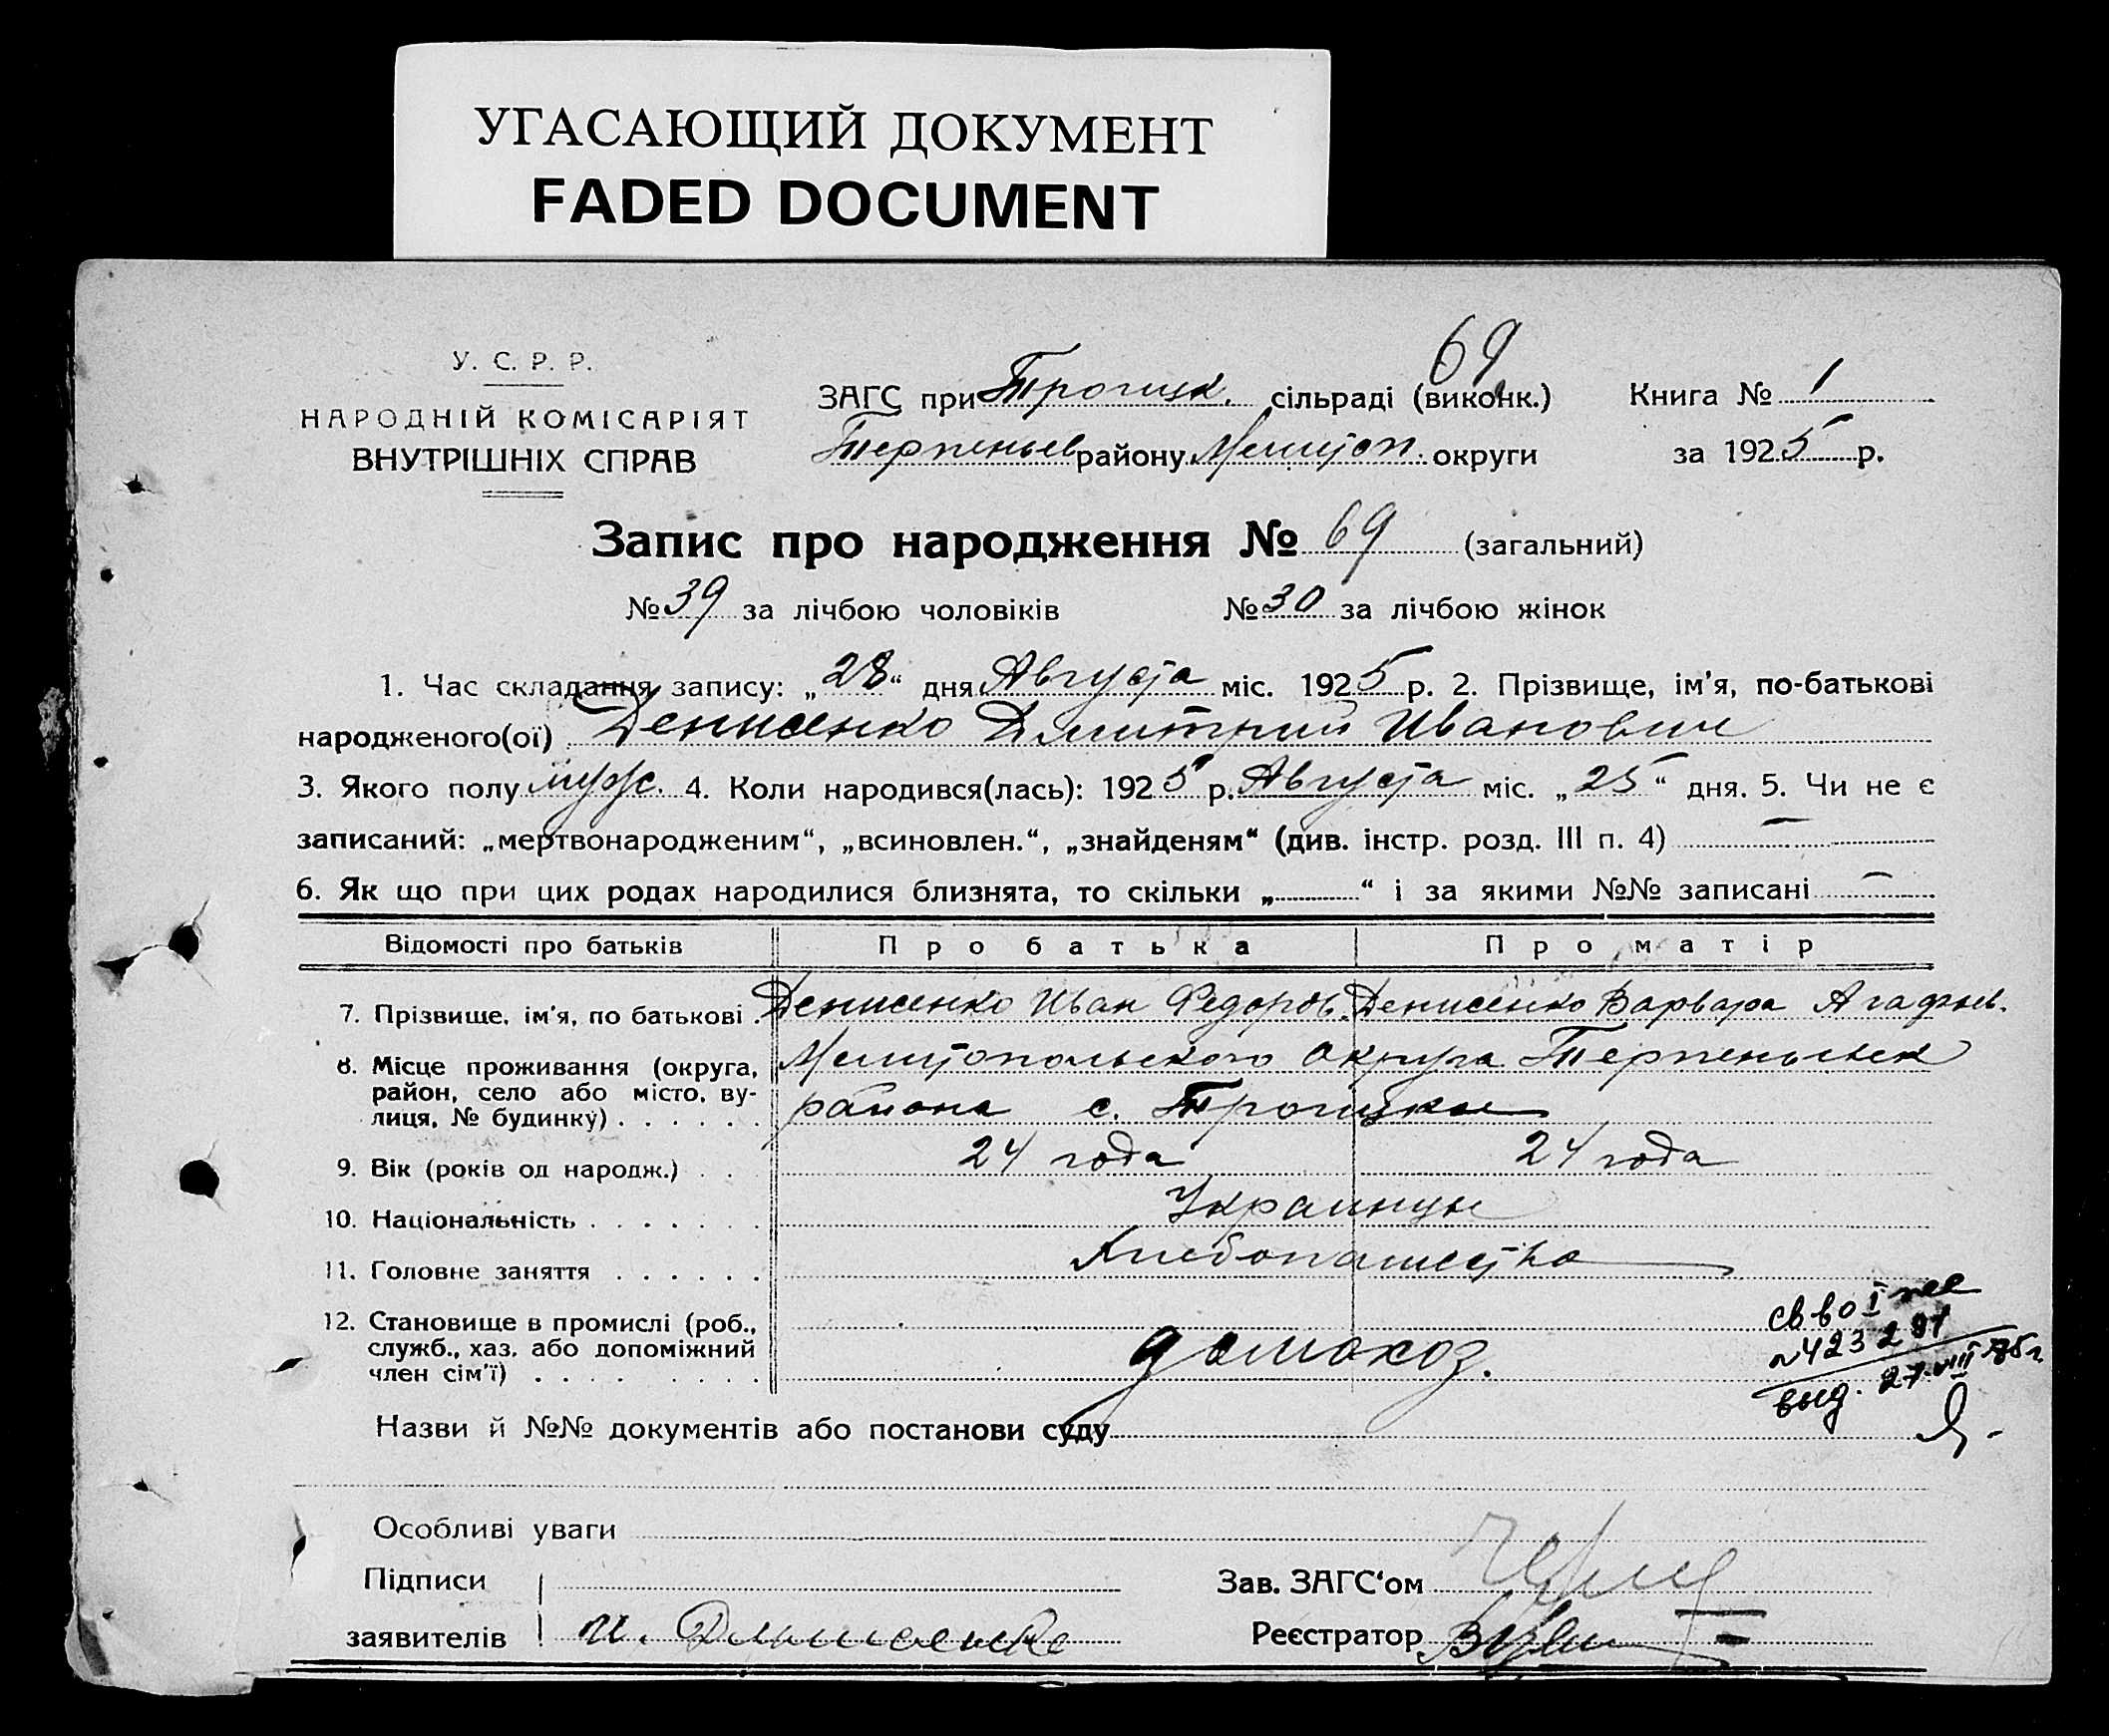 УГАСАЮЩИЙ ДОКУМЕНТ
FADED DOCUMENT
69
У. С. Р. Р.
НАРОДНІЙ КОМІСАРІЯТ
ВНУТРІШНІХ СПРАВ
ЗАГС при Троицк. сільраді (виконк.) Книга № 1
Терпеньев району Мелитоп. округи за 1925 р.
Запис про народження № 69 (загальний)
№ 39 за лічбою чоловіків № 30 за лічбою жінок
1. Час складання запису: „28“ дня Августа міс. 1925 р. 2. Прізвище, ім'я, по-батькові
народженого(ої) Денисенко Дмитрий Иванович
3. Якого полу муж. 4. Коли народився(лась): 1925 р. Августа міс. „25“ дня. 5. Чи не є
записаний: „мертвонародженим“, „всиновлен.“, „знайденям“ (див. інстр. розд. III п. 4) —
6. Як що при цих родах народилися близнята, то скільки „ “ і за якими №№ записані —
Відомості про батьків Про батька Про матір
7. Прізвище, ім'я, по батькові . Денисенко Иван Федоров. Денисенко Варвара Агафьев.
8. Місце проживання (округа, Мелитопольского Округа Терпеньевск
район, село або місто, ву-
лиця, № будинку) . . . . . . района с. Троицкое
9. Вік (років од народж.) . . 24 года 24 года
10. Національність . . . . . . . Украинцы
11. Головне заняття . . . . . . Хлебопашество
12. Становище в промислі (роб.,
служб., хаз. або допоміжний
член сім'ї) . . . . . . . . . домохоз.
св во I
№ 423291
выд. 27.VIII 85г.
Назви й №№ документів або постанови суду
Особливі уваги
Підписи Зав. ЗАГС'ом
заявителів И. Денисенко Реєстратор